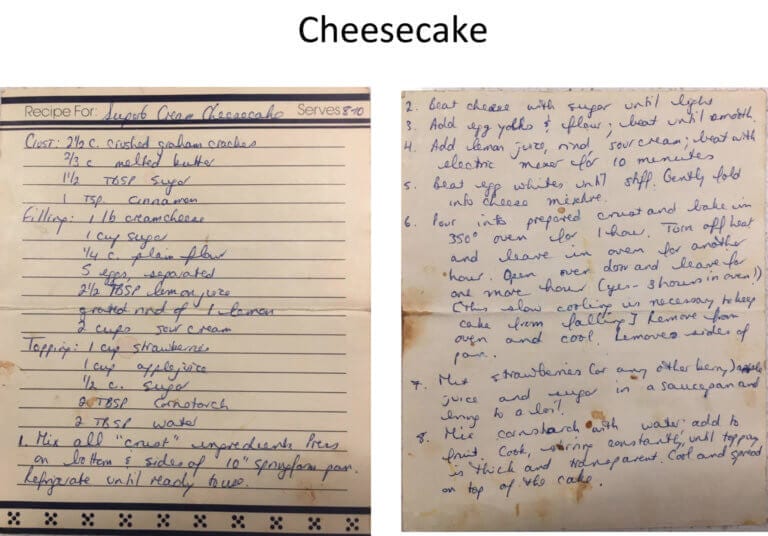 Cheesecake
Recipe For: Superb Cream Cheesecake Serves 8-10
Crust: 2 1/2 c. crushed graham crackers
2/3 c. melted butter
1 1/2 TBSP sugar
1 TSP. cinnamon
Filling: 1 lb creamcheese
1 cup sugar
1/4 c. plain flour
5 eggs, separated
2 1/2 TBSP lemon juice
grated rind of 1 lemon
2 cups sour cream
Topping: 1 cup strawberries
1 cup applejuice
1/2 c. sugar
2 TBSP cornstarch
2 TBSP water
1. Mix all "crust" ingredients Press
on bottom & sides of 10" springform pan.
Refrigerate until ready to use.
2. Beat cheese with sugar until light
3. Add egg yolks & flour; beat until smooth.
4. Add lemon juice, rind, sour cream; beat with
electric mixer for 10 minutes
5. Beat egg whites until stiff. Gently fold
into cheese mixture.
6. Pour into prepared crust and bake in
350° oven for 1 hour. Turn off heat
and leave in oven for another
hour. Open oven door and leave for
one more hour (yes - 3 hours in oven!)
[This slow cooling is necessary to keep
cake from falling] Remove from
oven and cool. Remove sides of
pan.
7. Mix strawberries (or any other berry)
juice and sugar in a saucepan and
bring to a boil.
8. Mix cornstarch with water; add to
fruit. Cook, stirring constantly, until topping
is thick and transparent. Cool and spread
on top of the cake.